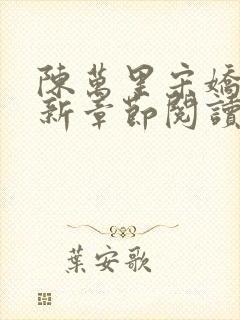 陳萬里宋嬌
新章節閱讀
葉安歌